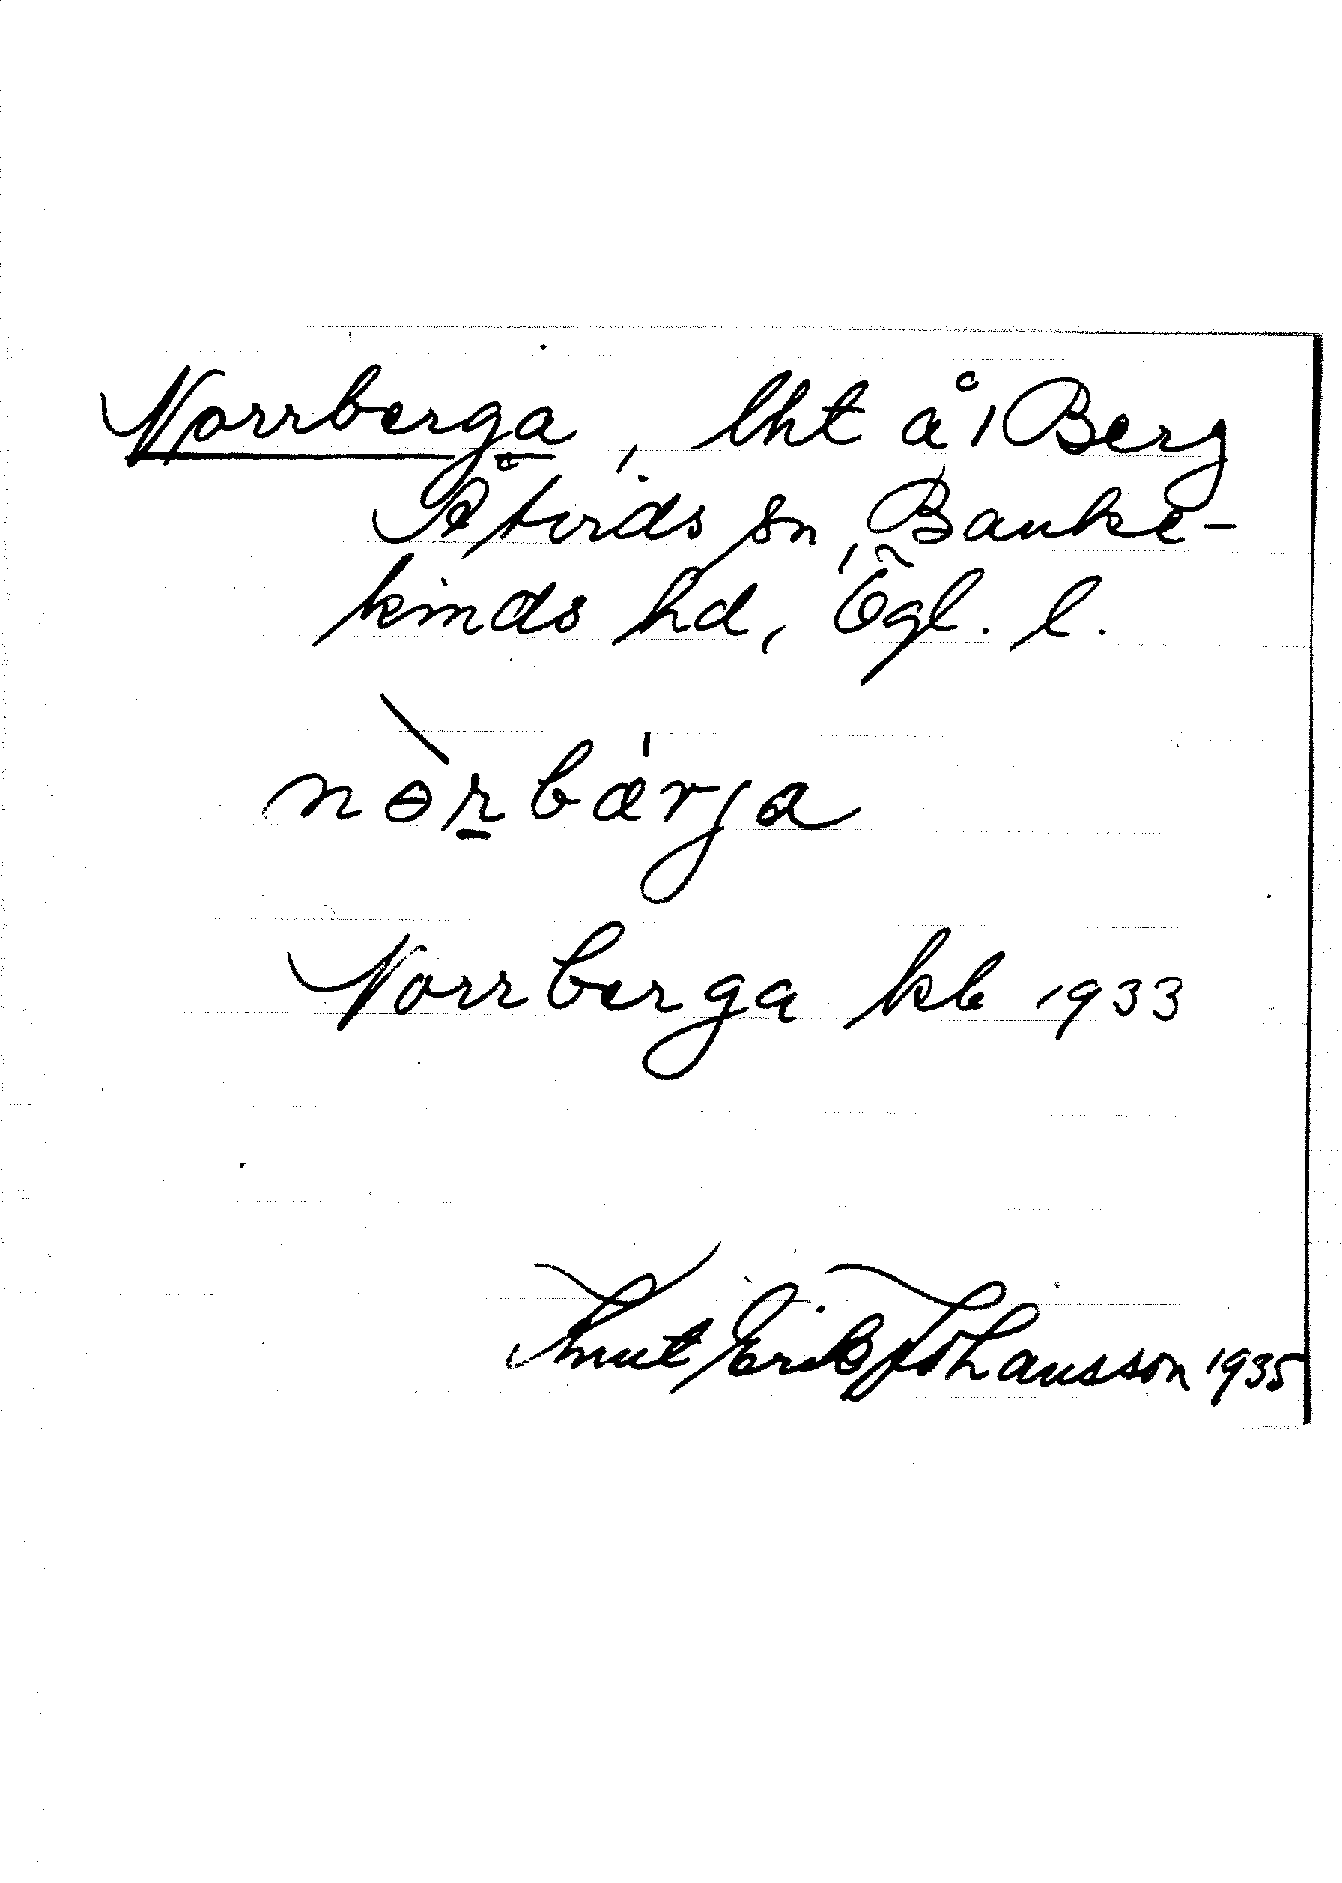 Norrberga, lht å 1 Berg
Åtvids sn, Banke-
kinds hd, Ögl. l.
nɵ̀rbærja
Norrberga kb 1933
Knut Erik Johansson 1935